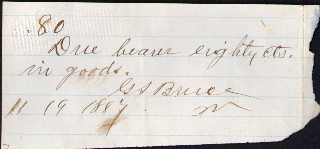 .80
Due bearer eighty cts.
in goods.
G S Bruce
11 19 1887.